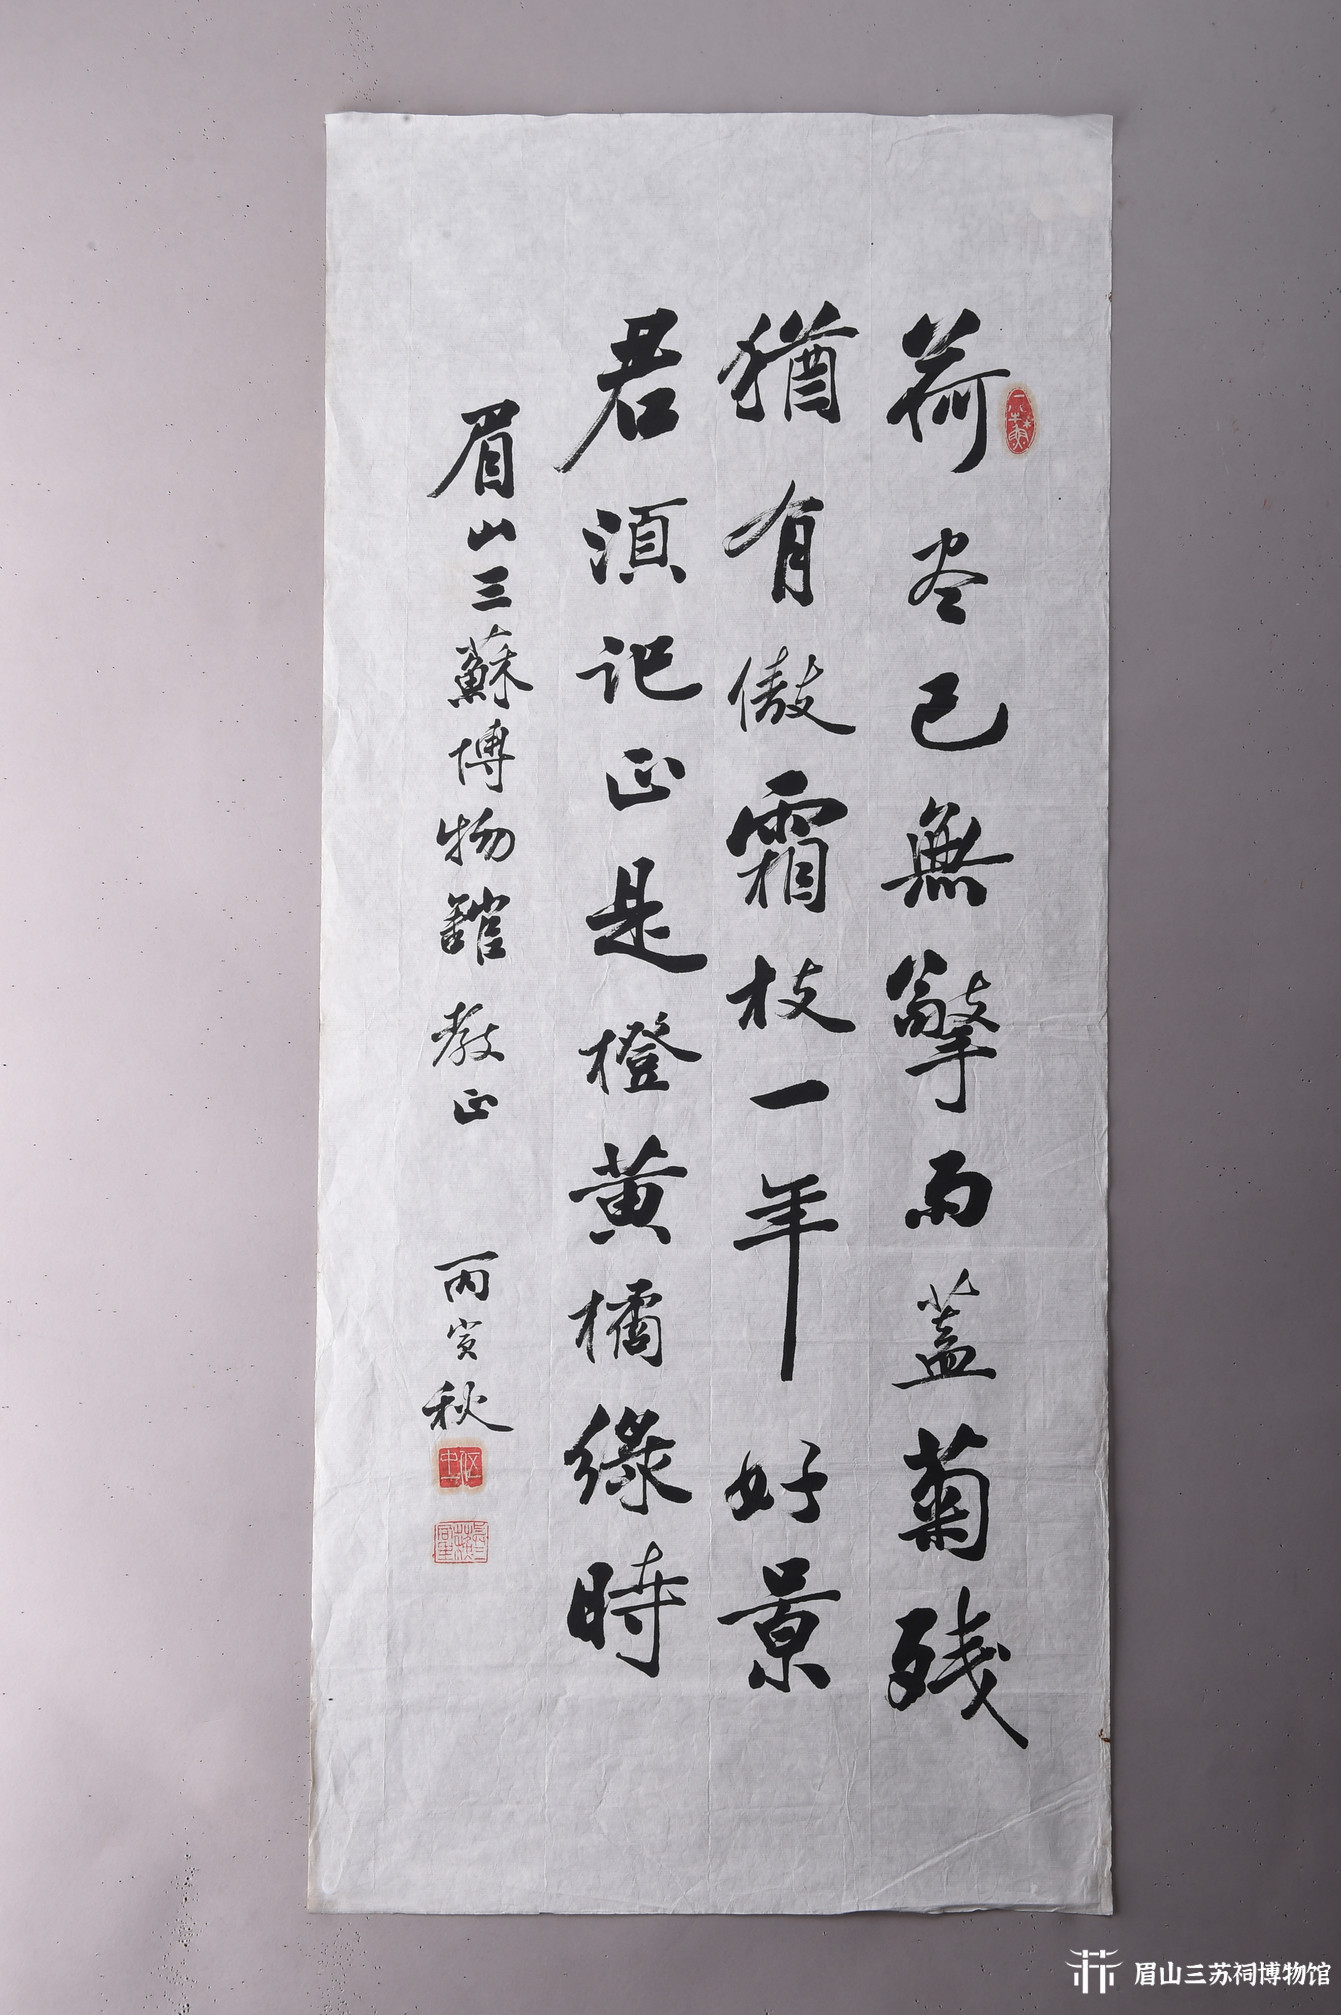 荷尽已無擎雨蓋菊残
猶有傲霜枝一年好景
君須記正是橙黄橘緑時
眉山三蘇博物館 教正 丙寅秋
眉山三苏祠博物馆